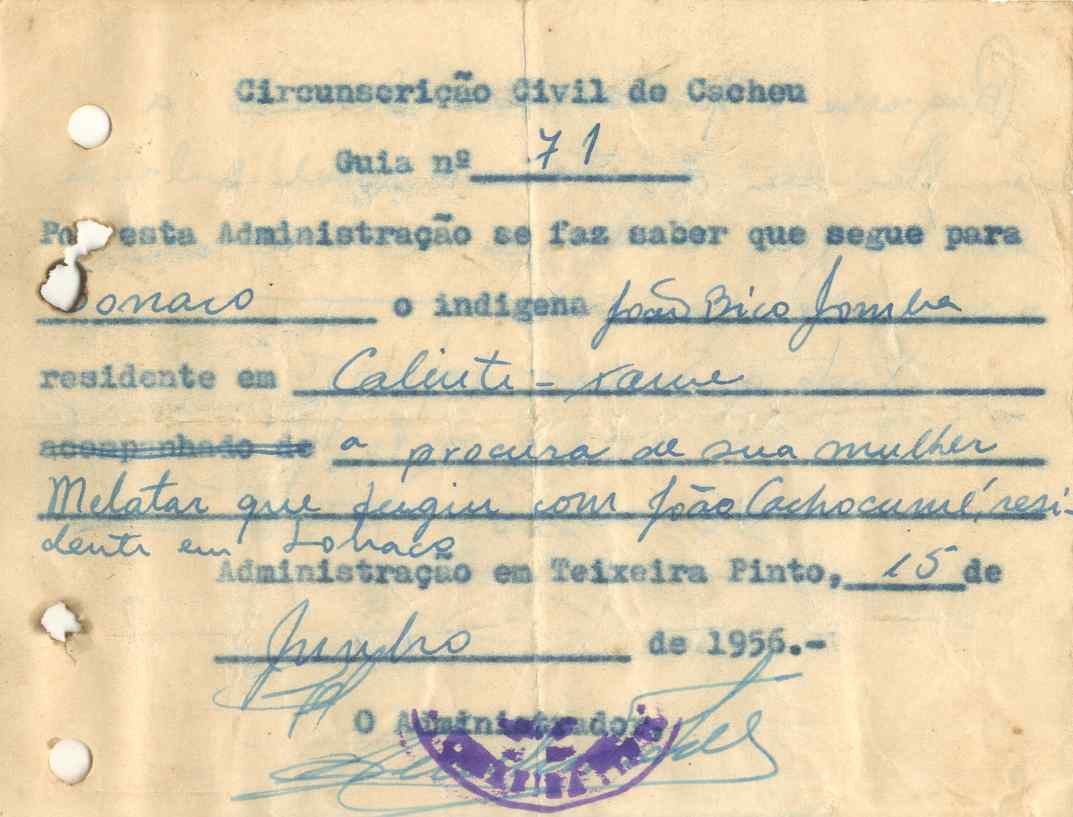 Circunscrição Civil de Cacheu
Guia nº 71
Por esta Administração se faz saber que segue para
o indigena João Bico Jomba
residente em Caliente -
acompanhado de a procura de sua mulher
Melatar que fugiu com João Cachocumé, resi-
dente em Lonaco
Administração em Teixeira Pinto, 15 de
Junho de 1956.-
O Administrador,